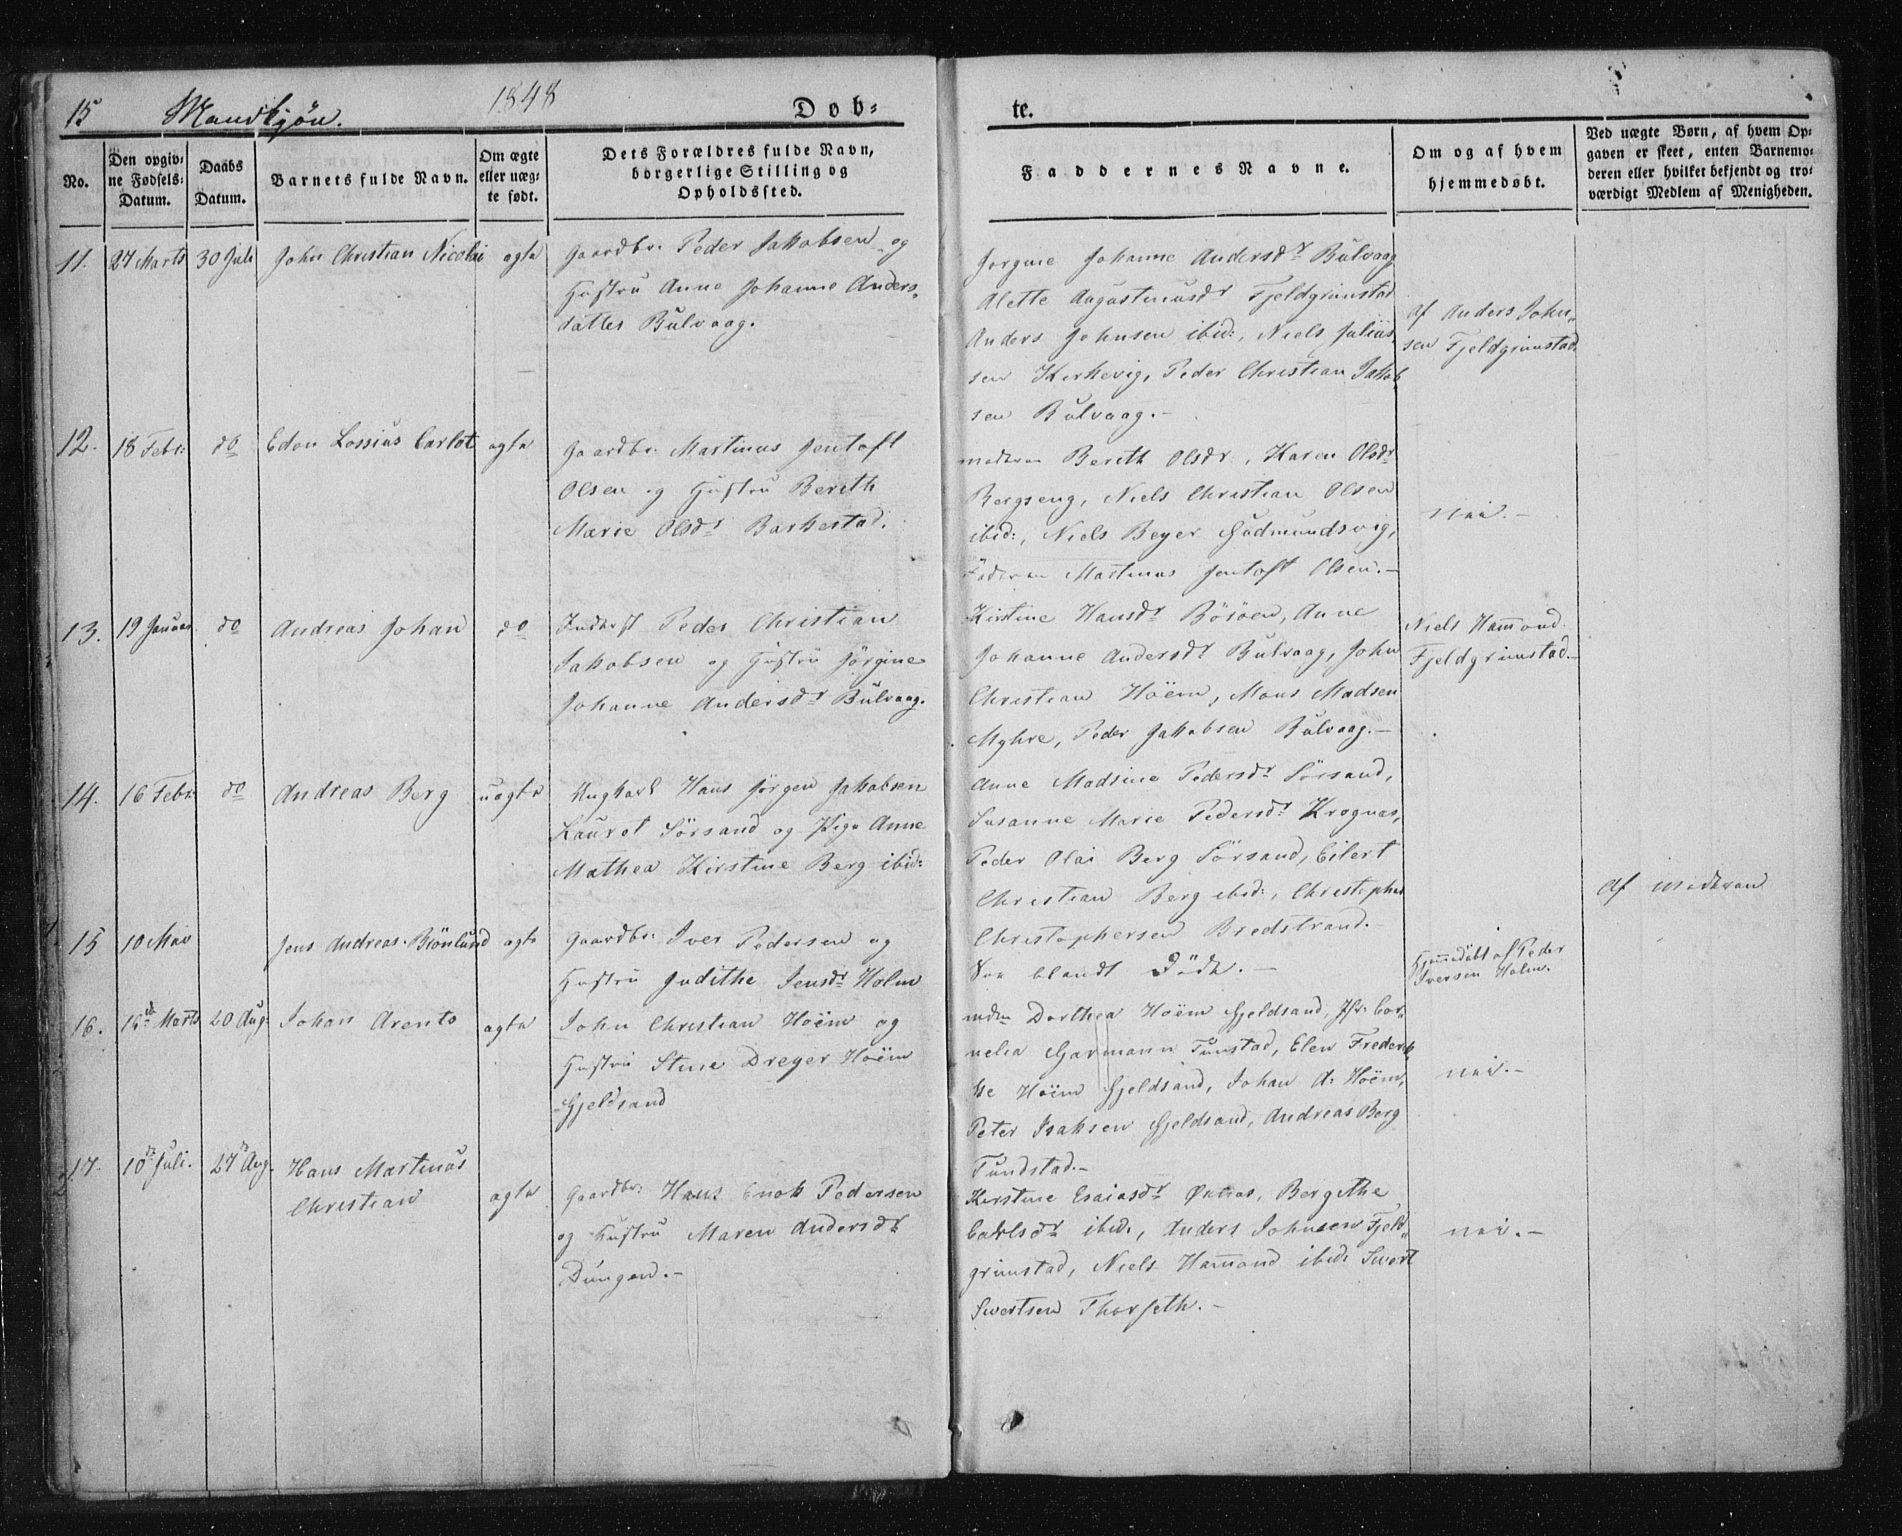 15 Mandkjøn. 1848 Dob- te.
No.
Den opgiv-
ne Fødsels-
Datum.
Daabs
Datum.
Barnets fulde Navn.
Om ægte
eller uæg-
te født.
Dets Forældres fulde Navn,
borgerlige Stilling og
Opholdssted.
Faddernes Navne.
Om og af hvem
hjemmedøbt.
Ved uægte Børn, af hvem Op-
gaven er skeet, enten Barnemo-
deren eller hvilket bekjendt og tro-
værdigt Medlem af Menigheden.
11. 27 Marts 30 Juli John Christian Nicolai ægte
Gaardbr: Peder Jakobsen og
Hustru Anne Johanne Anders-
datter Bulvaag.
Jørgine Johanne Andersdr Bulvaag
Alette Augustinusdr Fjeldgrimstad
Anders Johnsen ibid:, Niels Julius
sen Kirkevig, Peder Christian Jakob
sen Bulvaag.-
Af Anders John-
sen Fjeldgrimstad.
12. 18 Febr: do Edon Lossius Carlot ægte
Gaardbr. Martinus Jentoft
Olsen og Hustru Berith
Marie Olsdr Barkestad.
moderen Berith Olsdr., Karen Olsdr
Bergseng, Niels Christian Olsen
ibid:, Niels Beyer Gudmundsvig,
Faderen Martinus Jentoft Olsen.-
nei.-
13. 19 Januar do Andreas Johan do
Inderst Peder Christian
Jakobsen og Hustru Jørgine
Johanne Andersdr Bulvaag.
Kirstine Hansdr Bösöen, Anne
Johanne Andersdr Bulvaag, John
Christian Höem, Mons Madsen
Myhre, Peder Jakobsen Bulvaag.-
Niels Hamond
Fjeldgrimstad.-
14. 16 Febr do Andreas Berg uægte
Ungkarl Hans Jørgen Jakobsen
Lauret Sörsand og Pige Anne
Mathea Kirstine Berg ibid:
Anne Madsine Pedersdr Sörsand,
Susanne Marie Pedersdr Krognæs,
Peder Olai Berg Sörsand, Eilert
Christian Berg ibid:, Christopher
Christophersen Bredstrand.-
Af Moderen
15 10 Mai Jens Andreas Brönlund ægte
Gaardbr. Iver Pedersen og
Hustru Judithe Jensdr Holm
See blandt Döde.-
Hjemmedöbt af Peder
Iversen Holm.
16. 16de Marts 20 Aug. Johan Arents ægte
John Christian Höem og
Hustru Stine Dreyer Höem
Gjeldsand
Mdm Dorthea Höem Gjeldsand, Jfr. Cor-
nelia Garmann Tunstad, Elen Frederik
ke Höem Gjeldsand, Johan A. Höem,
Peter Isaksen Gjeldsand, Andreas Berg
Tundstad.-
nei.-
17. 10de Juli. 27de Aug. Hans Martinus
Christian
ægte
Gaardbr. Hans Enok Pedersen
og Hustru Maren Andersdr
Dungan.-
Kirstine Esaiasdr, Bergithe
Carlsdr ibid:, Anders Johnsen Fjeld-
grimstad, Niels Hamond ibid: Sivert
Sivertsen Thorseth.-
nei.-